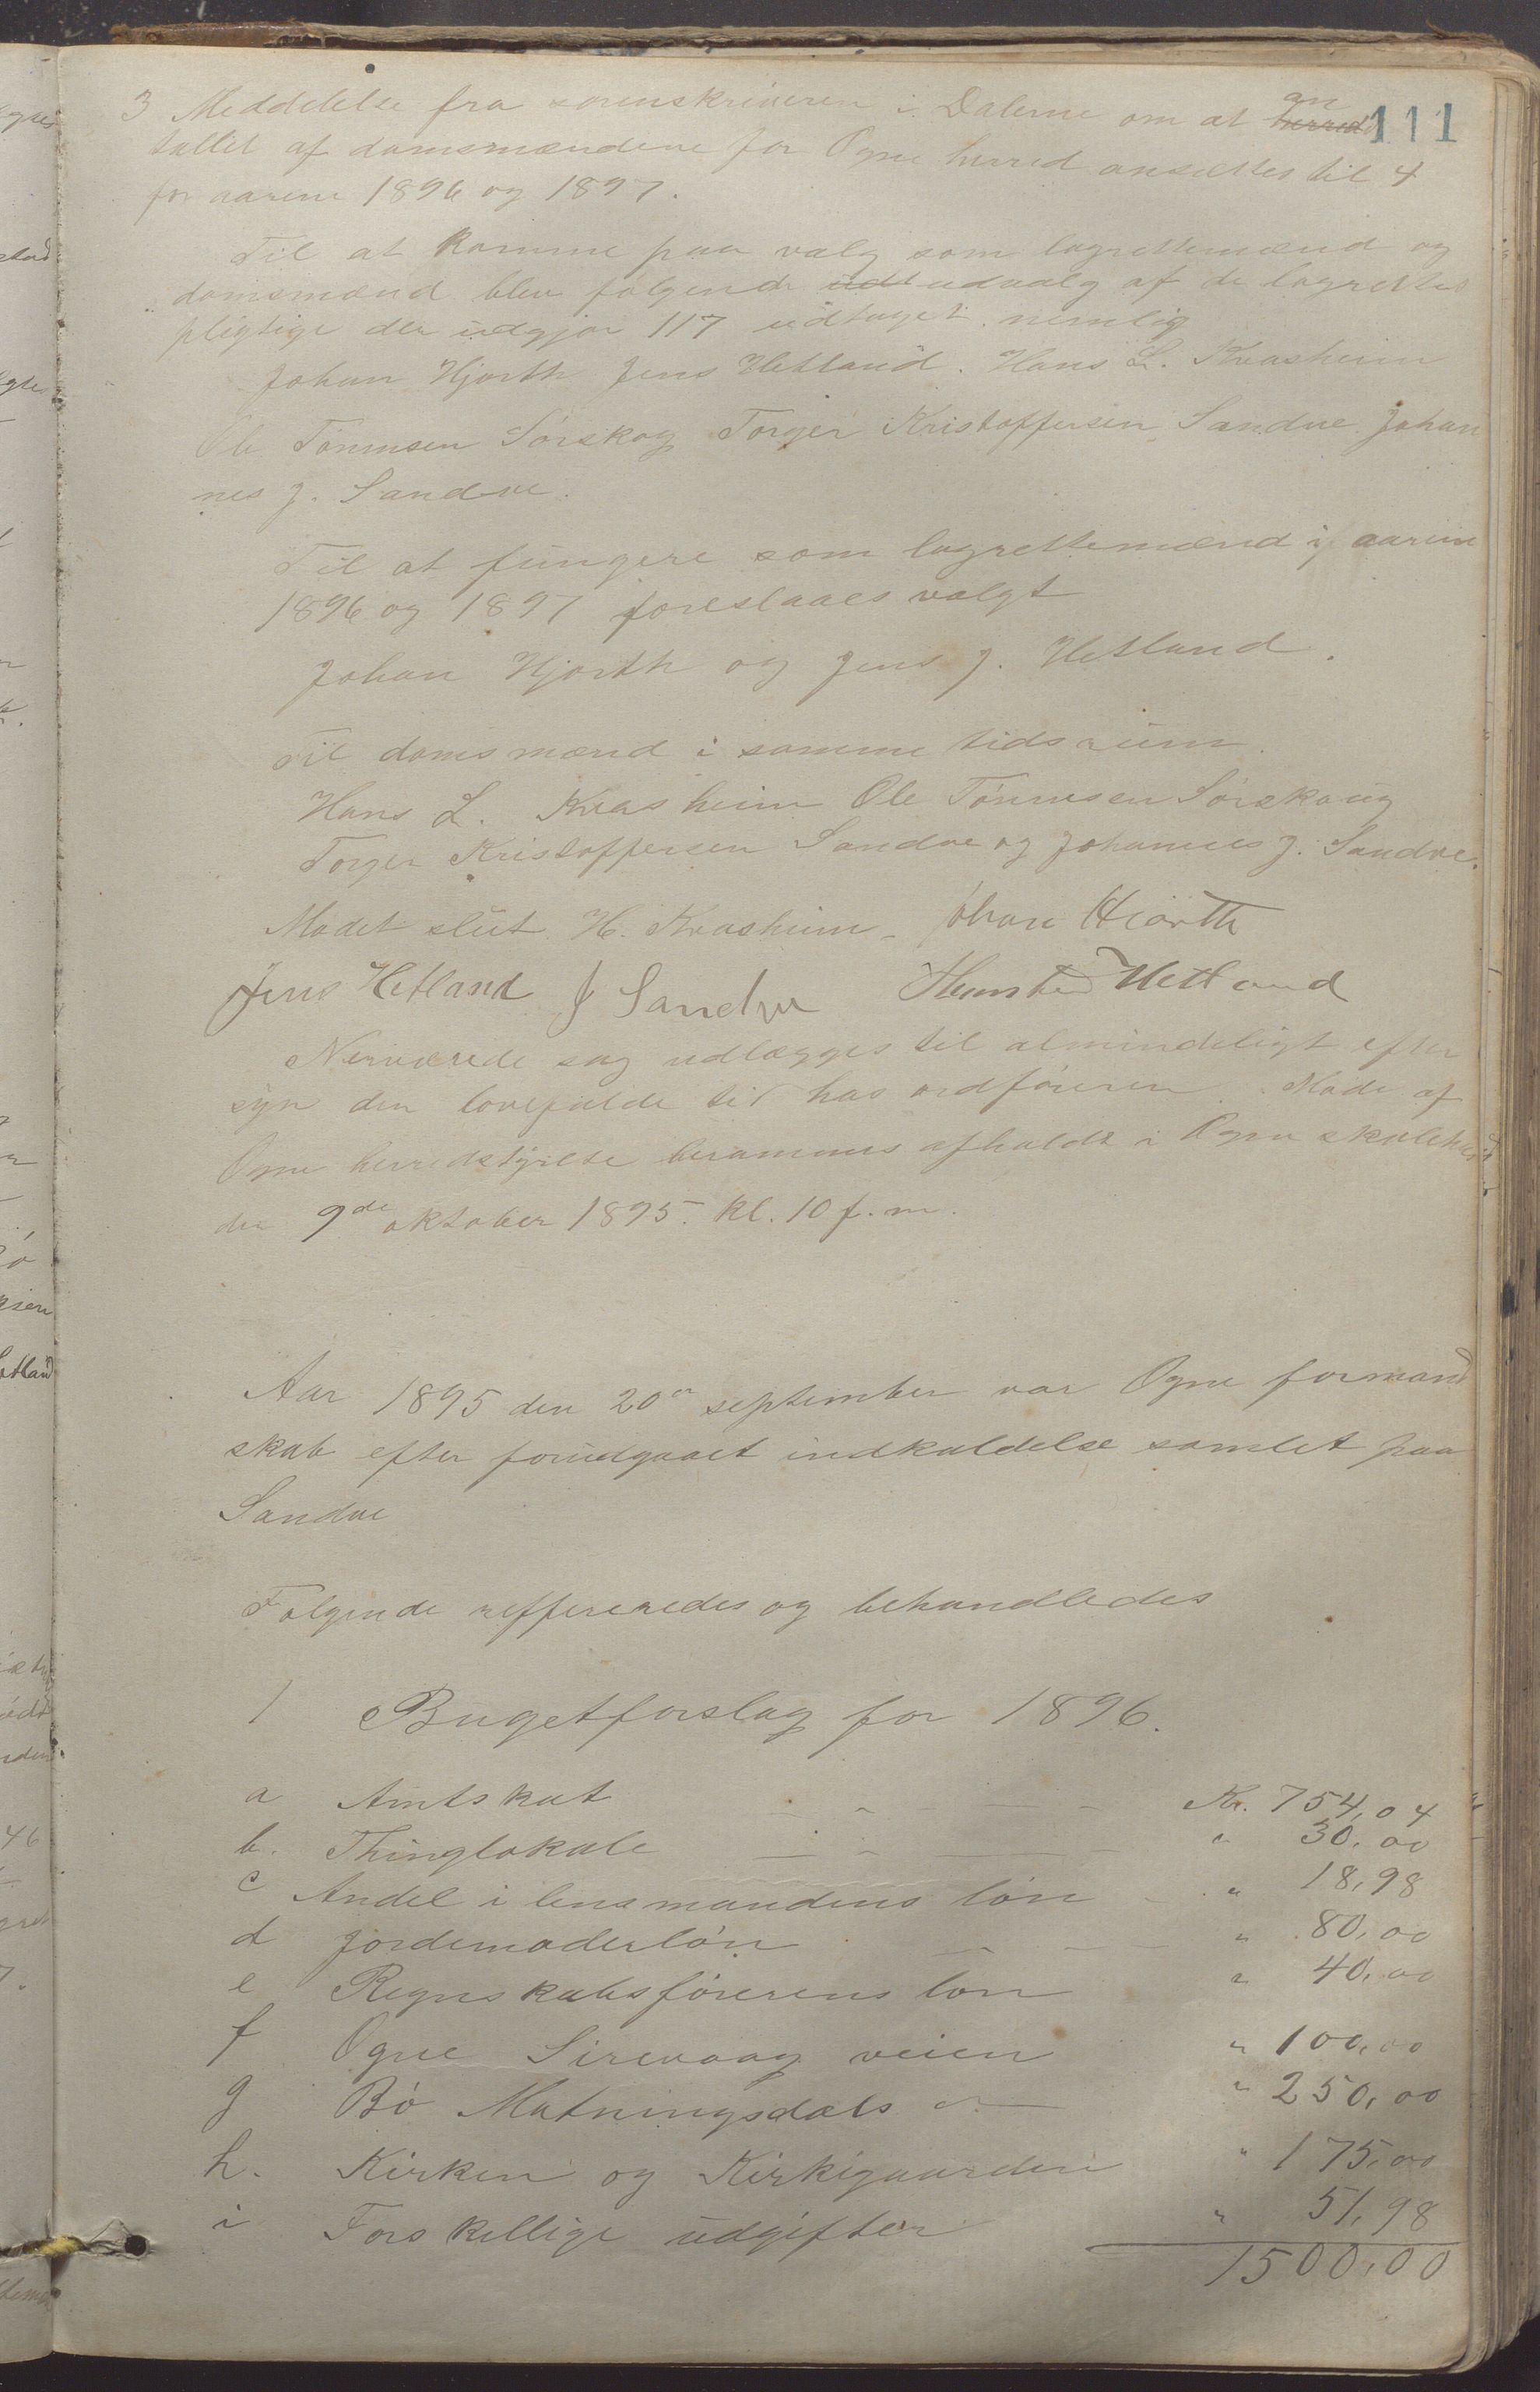 111
3 Meddelelse fra sorenskriveren i Dalerne om at an
tallet af domsmændene for Ogne herred ansættes til 4
for aarene 1896 og 1897.
Til at komme paa valg som lagrettemænd og
domsmænd blev følgende udt udvalg af de lagrettes
pligtige der udgjør 117 udtaget nemlig
Johan Hjorth Jens Hetland. Hans L. Kvasheim
Ole Tønnesen Sørskog Torger Kristoffersen Sandve Johan
nes J. Sandve.
Til at fungere som lagrettemænd i aarene
1896 og 1897 foreslaaes valgt
Johan Hjorth og Jens J. Hetland.
Til domsmænd i samme tidsrum.
Hans L. Kvasheim Ole Tønnesen Sørskoug
Torger Kristoffersen Sandve og Johannes J. Sandve.
Mødet slut. H. Kvasheim Johan Hiorth
Jens Hetland J Sandve Hetland
Nerværede sag udlægges til almindeligt efter
syn den lovefulde tid hos ordføreren. Møde af
Ogne herredstyrelse berammes afholdt i Ogne skolehus
den 9de oktober 1895. kl. 10 f.m.
Aar 1895 den 20de september var Ogne formand
skab efter forudgaaet indkaldelse samlet paa
Sandve
Følgende reffereredes og behandledes
1 Bugetforslag for 1896.
a Amtskat Kr. 754,04
b. Thinglokale " 30,00
c Andel i lensmandens løn " 18,98
d Jordemoderløn " 80,00
e Regnskabsførerens løn " 40,00
f Ogne Sirevaag veien " 100,00
g Bø Matningsdals " — " 250,00
h. Kirken og Kirkegaarden " 175,00
i Forskellige udgifter " 51,98
1500,00